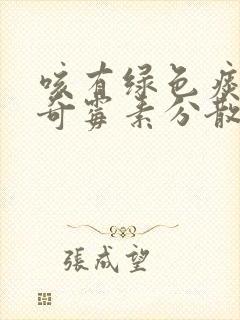 咳有绿色痰
奇霉素分散
張成望